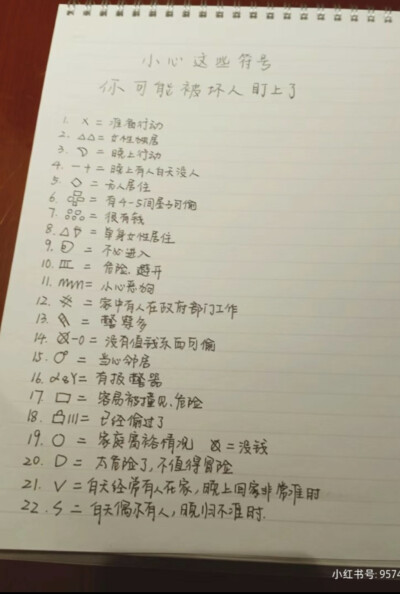 小心这些符号
你可能被坏人盯上了
1. × = 准备行动
2. △△ = 女性独居
3. = 晚上行动
4. -+ = 晚上有人白天没人
5. ◇ = 无人居住
6. = 有4-5间屋可偷
7. = 很有钱
8. △▽ = 单身女性居住
9. = 不必进入
10. = 危险 避开
11. = 小心恶狗
12. = 家中有人在政府部门工作
13. = 警察多
14. -0 = 没有值钱东西可偷
15. = 当心邻居
16. = 有报警器
17. □ = 容易被撞见、危险
18. = 已经偷过了
19. ○ = 家庭富裕情况 = 没钱
20. D = 太危险了,不值得冒险
21. V = 白天经常有人在家,晚上回家非常准时
22. S = 白天偶尔有人,晚归不准时.
小红书号: 9574